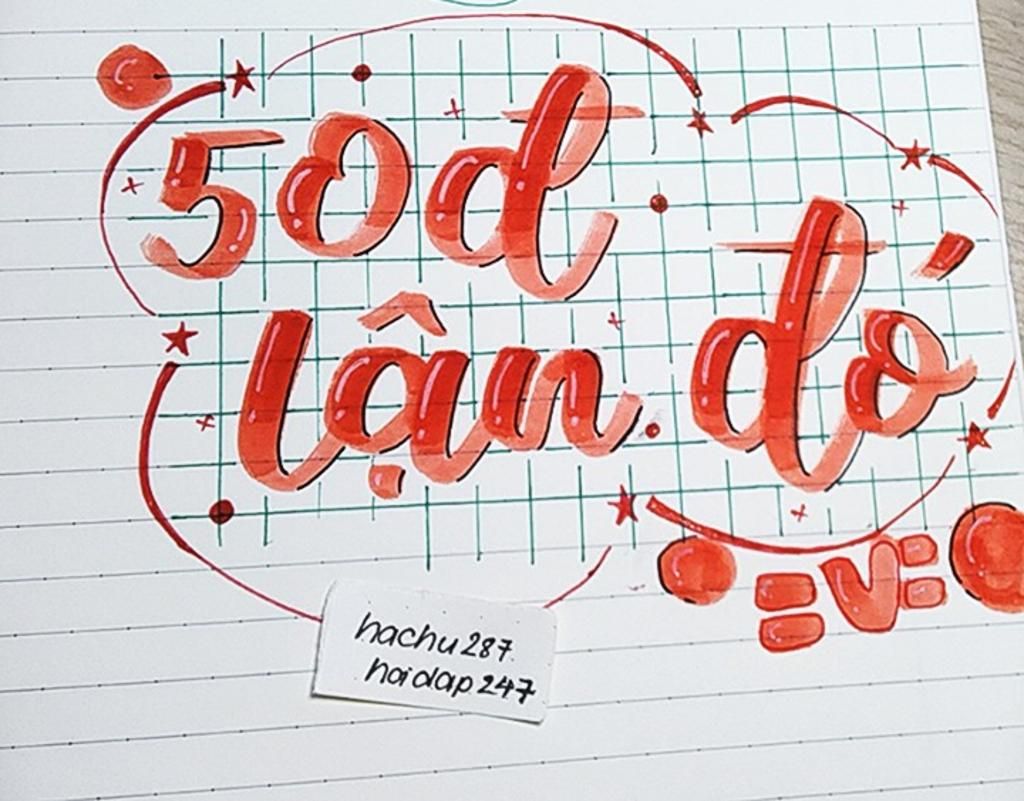 50đ
lận đó
=V=
hachu287
hoidap247